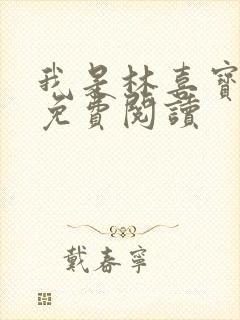 我是林喜寶
免費閱讀
戴春寧